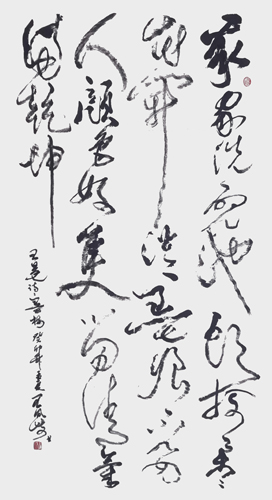 我家洗砚池头树朵朵
花開淡墨痕不要
人顏色好隻留清氣
滿乾坤
王冕诗墨梅 癸卯年夏